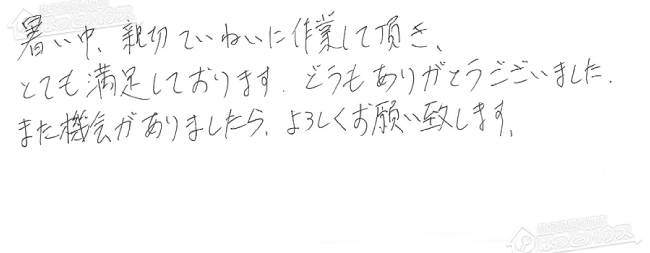 暑い中、親切ていねいに作業して頂き、
とても満足しております. どうもありがとうございました.
また機会がありましたら、よろしくお願い致します。